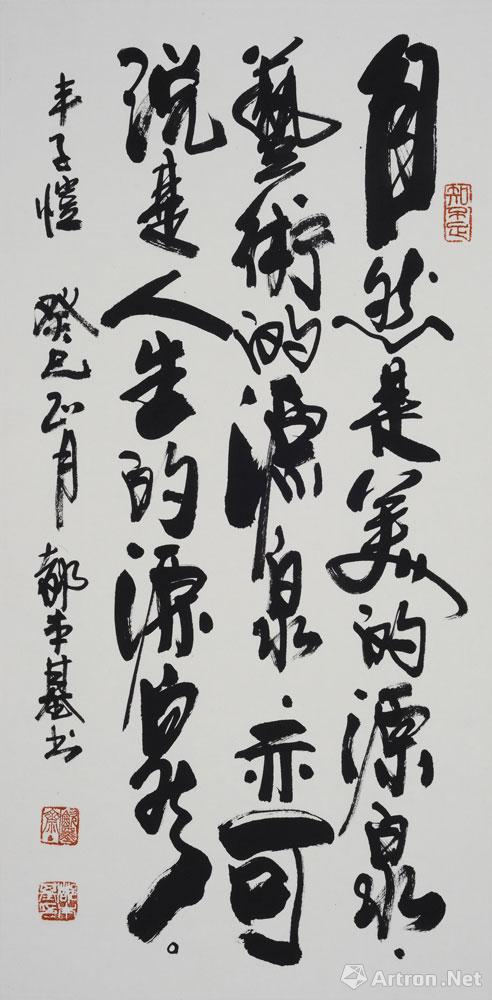 自然是美的源泉.
藝術的源泉.亦可
说是人生的源泉。
丰子愷 癸巳正月 都本基书
知不足
Artron.Net